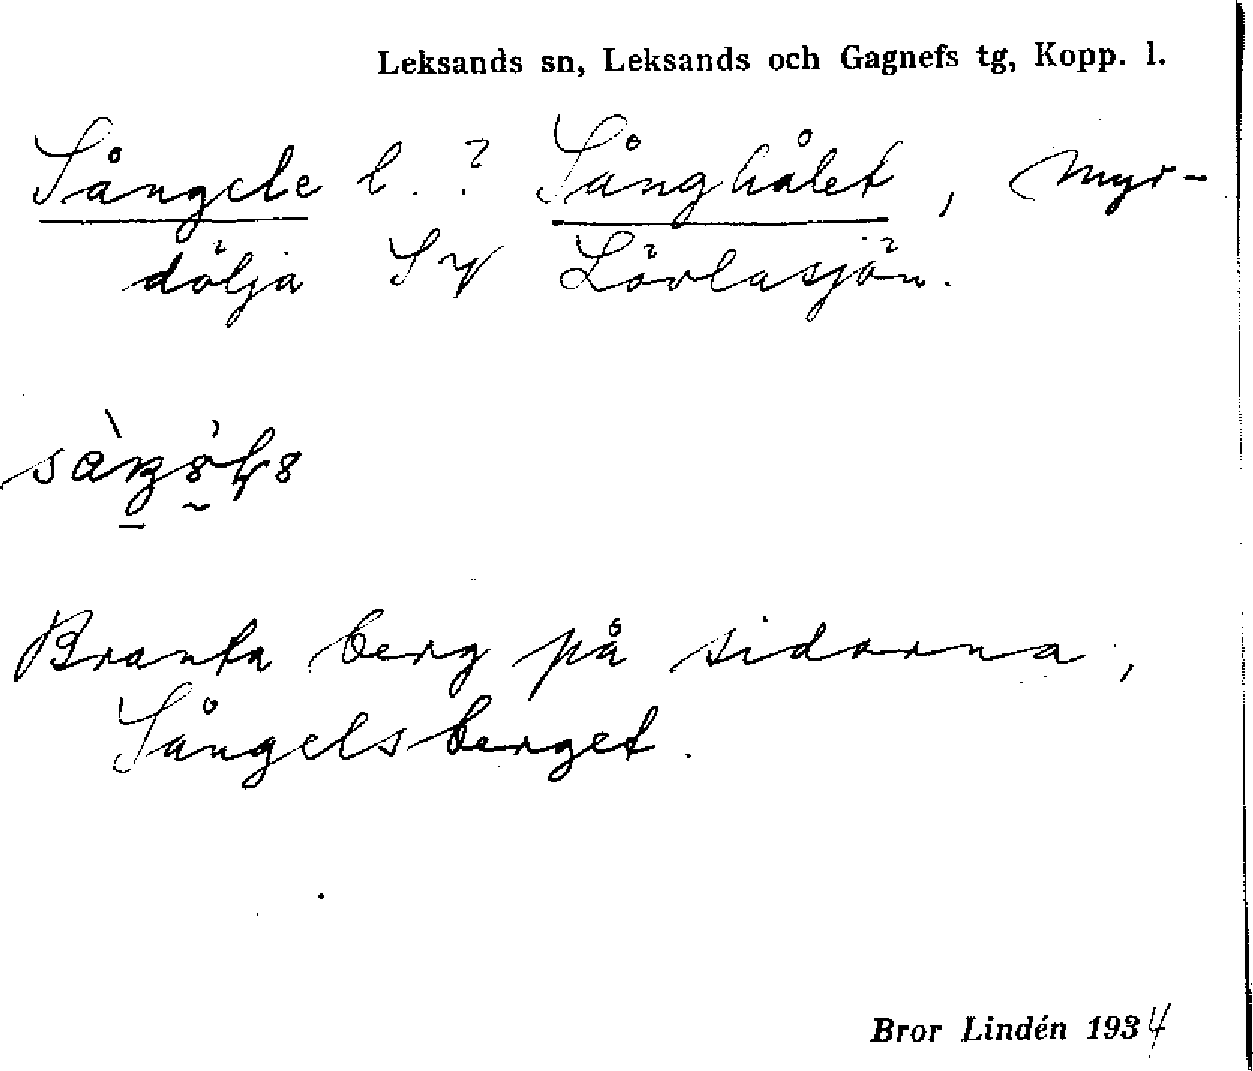 Leksands sn, Leksands och Gagnefs tg, Kopp. l.
Sångele l. ? Sånghålet, Myr-
dölja SV Lövlasjön.
Branta berg på sidorna,
Sångelsberget.
Bror Lindén 1934